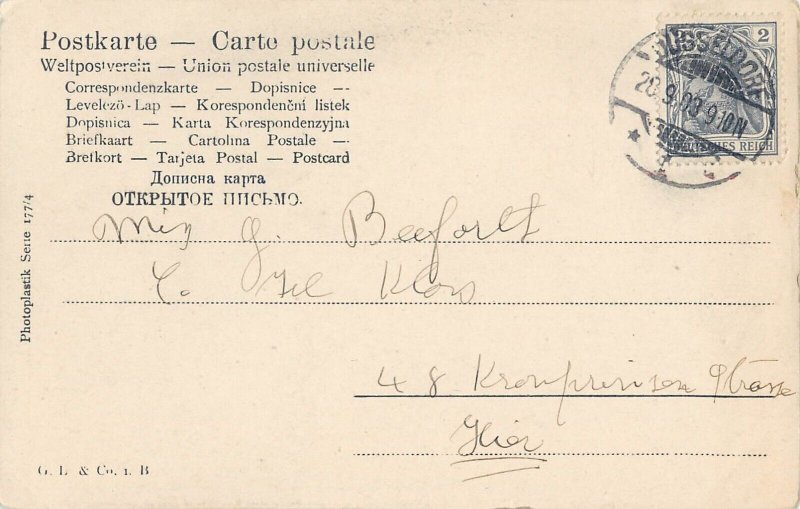 Postkarte — Carte postale
Weltpostverein — Union postale universelle
Correspondenzkarte — Dopisnice —
Levelező-Lap — Korespondenční listek
Dopisnica — Karta Korespondenzyjna
Briefkaart — Cartolina Postale —
Bretkort — Tarjeta Postal — Postcard
Дописна карта
ОТКРЫТОЕ ПИСЬМО.
2 2
DÜSSELDORF
20.9.03 9-10N
DEUTSCHES REICH
Photoplastik Serie 177/4
Miss G. Beeforth
48 Kronprinsen Strasse
Hier
G. L & Co. 1. B